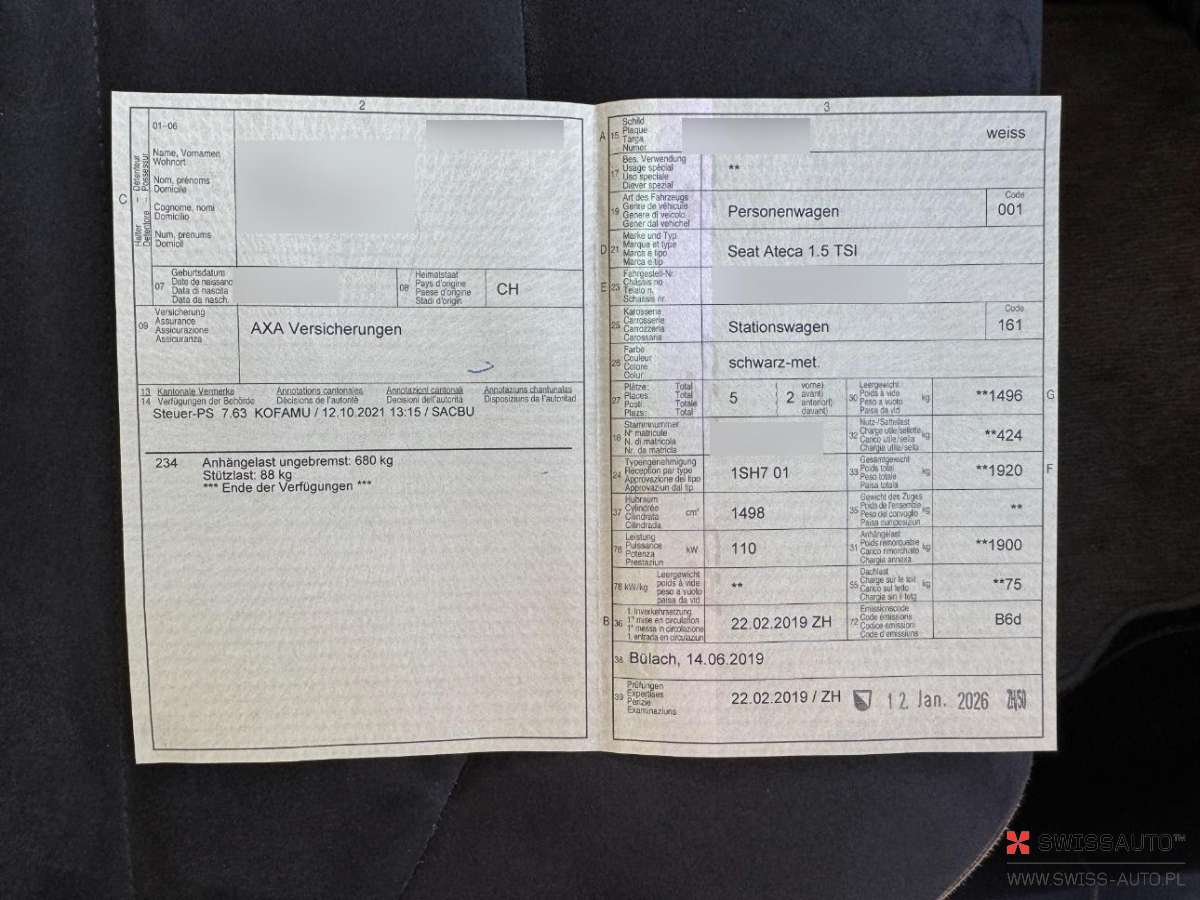 2
01-06
C
Halter - Détenteur
Detentore - Possessur
Name, Vornamen
Wohnort
Nom, prénoms
Domicile
Cognome, nomi
Domicilio
Num, prenums
Domicil
07
Geburtsdatum
Date de naissance
Data di nascita
Data da nasch.
08
Heimatstaat
Pays d'origine
Paese d'origine
Stadi d'origin
CH
09
Versicherung
Assurance
Assicurazione
Assicuranza
AXA Versicherungen
13 Kantonale Vermerke Annotations cantonales Annotazioni cantonali Annotaziuns chantunalas
14 Verfügungen der Behörde Décisions de l'autorité Decisioni dell'autorità Disposiziuns da l'autoritad
Steuer-PS 7.63 KOFAMU / 12.10.2021 13:15 / SACBU
234 Anhängelast ungebremst: 680 kg
Stützlast: 88 kg
*** Ende der Verfügungen ***
3
A 15
Schild
Plaque
Targa
Numer
weiss
17
Bes. Verwendung
Usage spécial
Uso speciale
Diever spezial
**
19
Art des Fahrzeugs
Genre de véhicule
Genere di veicolo
Gener dal vehichel
Personenwagen
Code
001
D 21
Marke und Typ
Marque et type
Marca e tipo
Marca e tip
Seat Ateca 1.5 TSI
E 23
Fahrgestell-Nr.
Châssis no
Telaio n.
Schassis nr.
25
Karosserie
Carrosserie
Carrozzeria
Carossaria
Stationswagen
Code
161
26
Farbe
Couleur
Colore
Colur
schwarz-met.
27
Plätze: Total
Places: Total
Posti: Totale
Plazs: Total
5
2
vorne)
avant)
anteriori)
davant)
30
Leergewicht
Poids à vide
Peso a vuoto
Paisa da vid
kg
**1496
G
18
Stammnummer
N° matricule
N. di matricola
Nr. da matricla
32
Nutz-/Sattellast
Charge utile/sellette
Carico utile/sella
Chargia utile/sella
kg
**424
24
Typengenehmigung
Réception par type
Approvazione del tipo
Approvaziun dal tip
1SH7 01
33
Gesamtgewicht
Poids total
Peso totale
Paisa totala
kg
**1920
F
37
Hubraum
Cylindrée
Cilindrata
Cilindrada
cm³
1498
35
Gewicht des Zuges
Poids de l'ensemble
Peso del convoglio
Paisa cumposiziun
kg
**
76
Leistung
Puissance
Potenza
Prestaziun
kW
110
31
Anhängelast
Poids remorquable
Carico rimorchiato
Chargia annexa
kg
**1900
78 kW/kg
Leergewicht
poids à vide
peso a vuoto
paisa da vid
**
55
Dachlast
Charge sur le toit
Carico sul tetto
Chargia sin il tetg
kg
**75
B 36
1. Inverkehrsetzung
1re mise en circulation
1a messa in circolazione
1. entrada en circulaziun
22.02.2019 ZH
72
Emissionscode
Code émissions
Codice emissioni
Code d'emissiuns
B6d
38 Bülach, 14.06.2019
39
Prüfungen
Expertises
Perizie
Examinaziuns
22.02.2019 / ZH
12. Jan. 2026
ZH50
SWISSAUTO™
WWW.SWISS-AUTO.PL